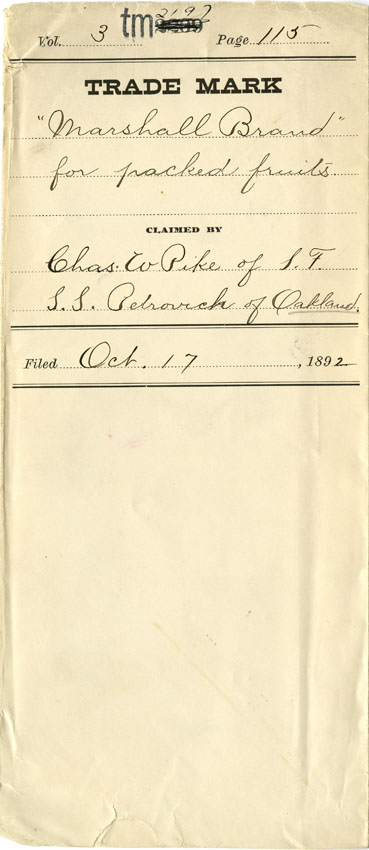 2192
Vol. 3 tm Page 115
TRADE MARK
"Marshall Brand"
for packed fruits
CLAIMED BY
Chas. W Pike of S. F.
S. S. Petrovich of Oakland.
Filed Oct. 17, 1892